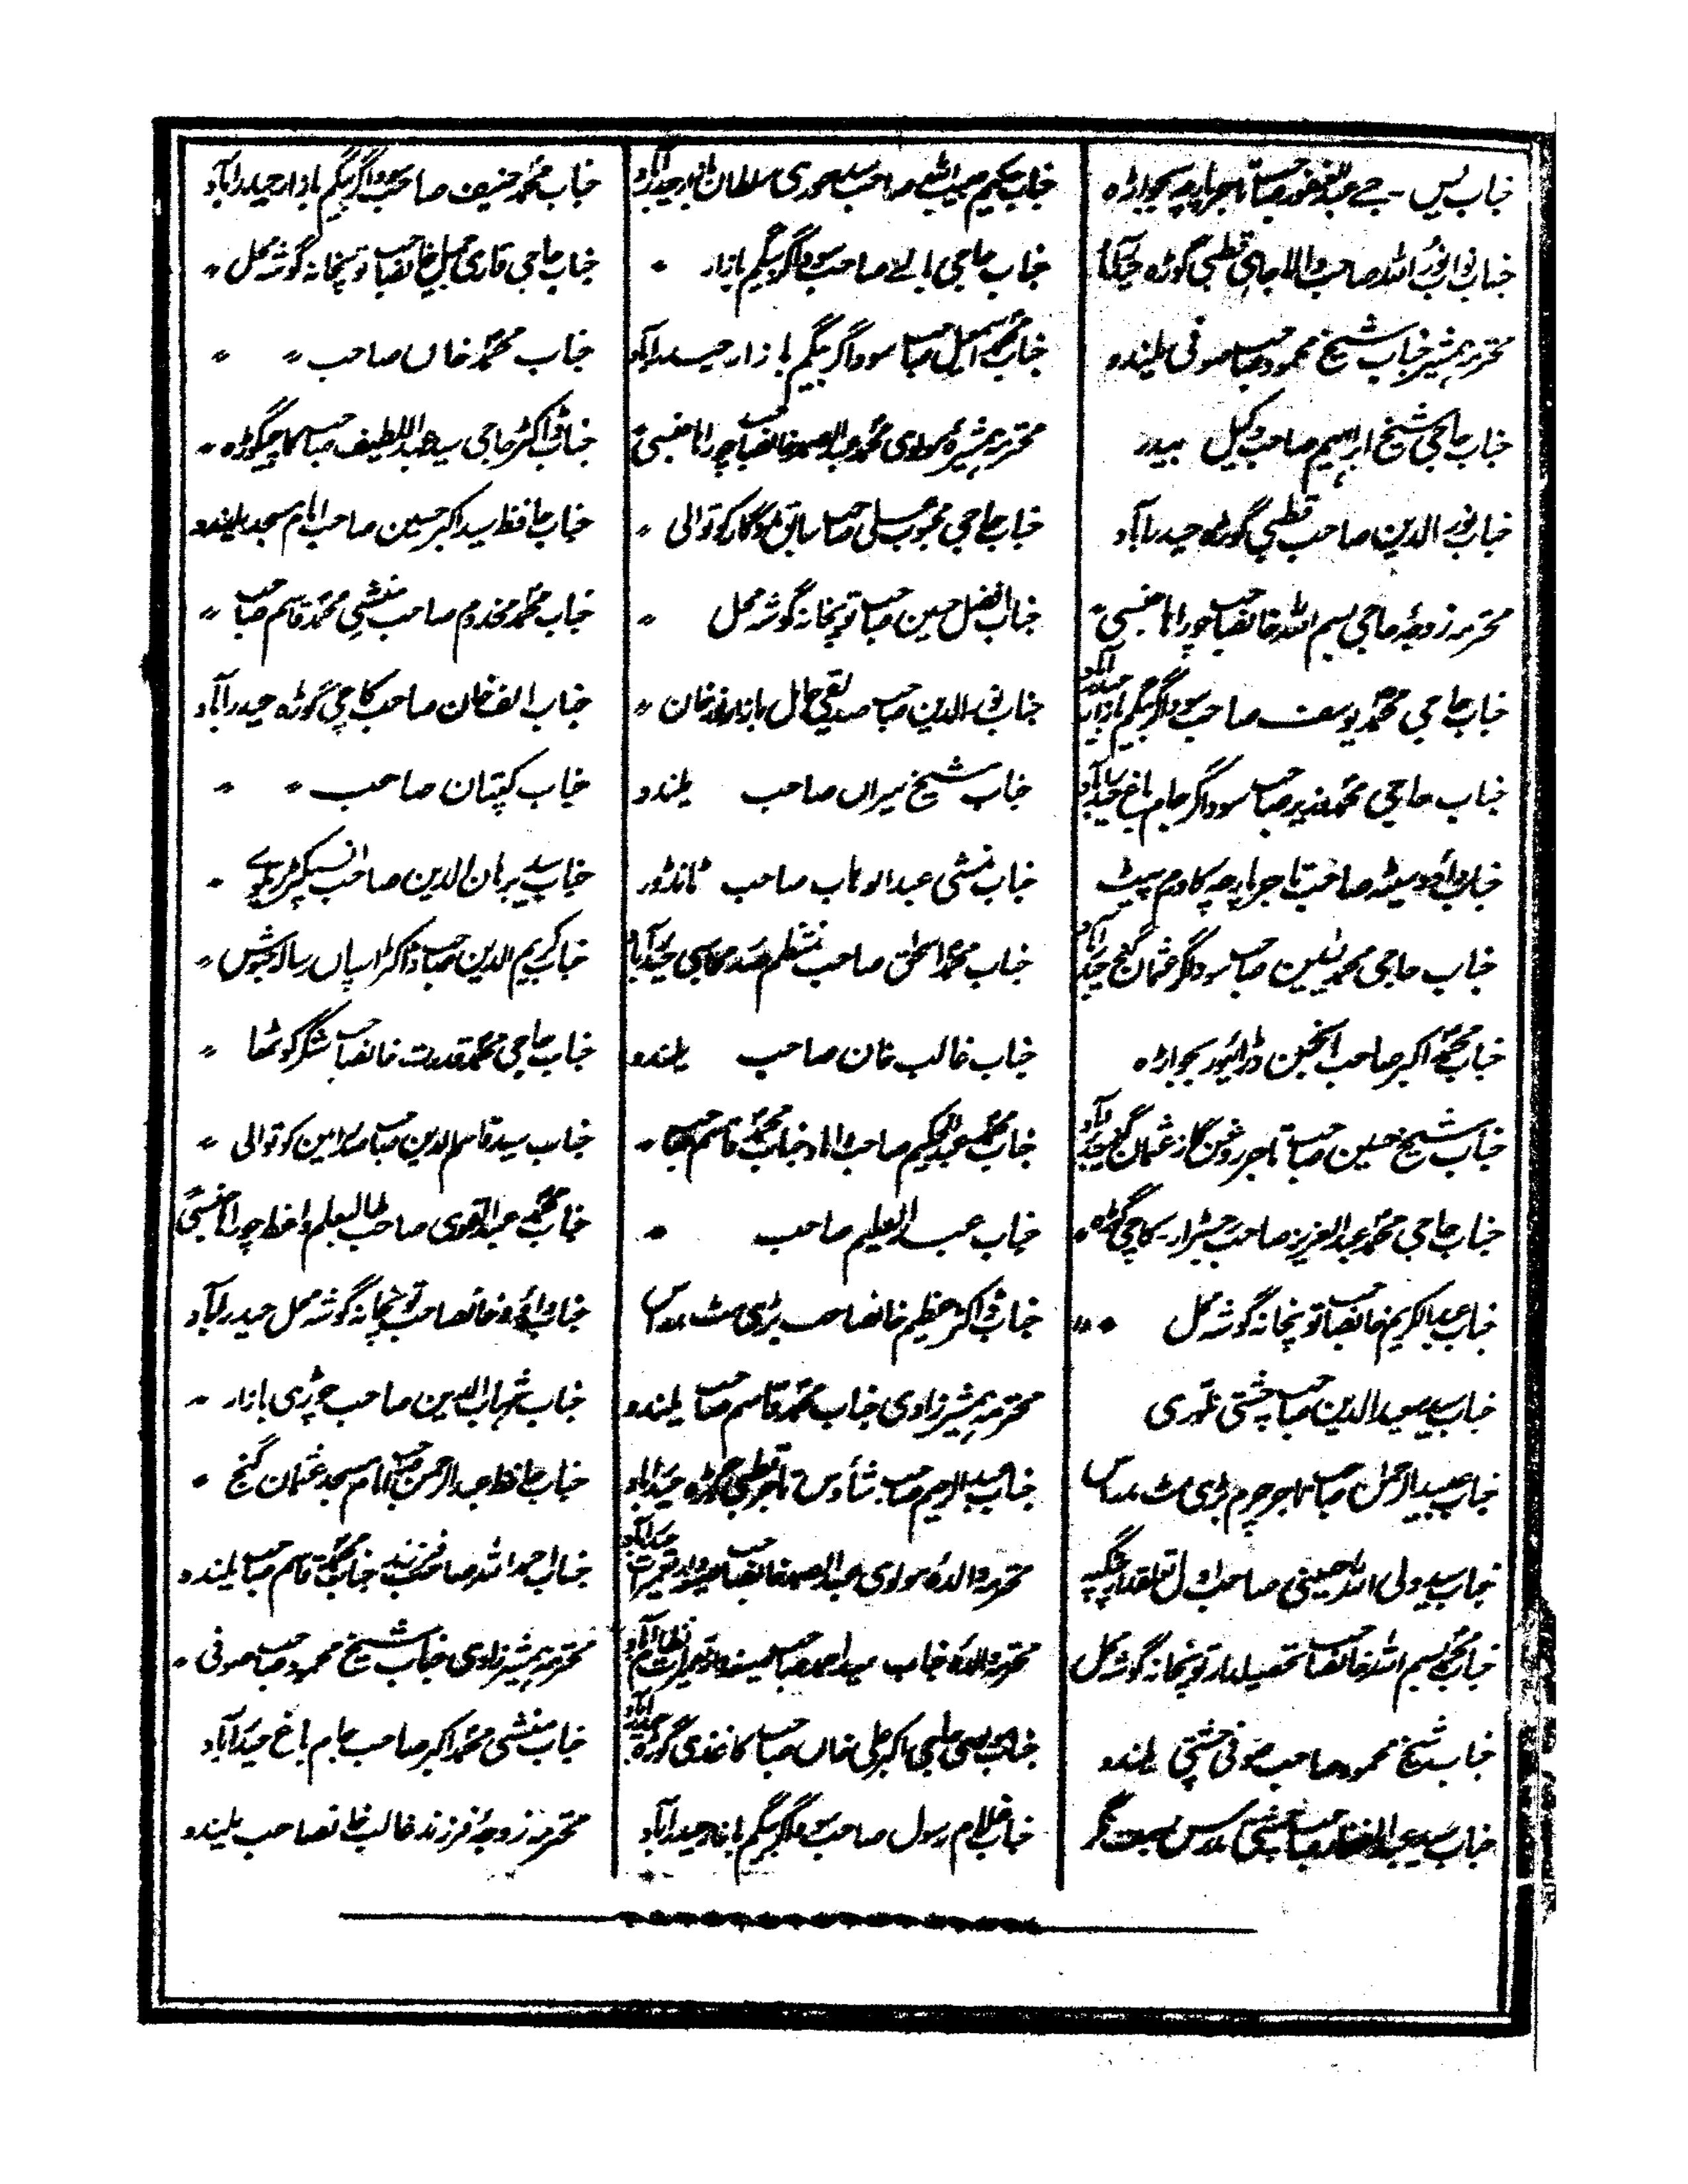 جناب یس ۔ جے عبدالغفور صاحب تاجر پارچہ بجواڑہ
جناب نواب نور اللہ صاحب والا جاہی قطبی گوڑہ
محترمہ ہمشیر جناب شیخ محمود صاحب صوفی یلندو
جناب حاجی شیخ ابراہیم صاحب وکیل بیدر
جناب نور الدین صاحب قطبی گوڑہ حیدرآباد
محترمہ زوجۂ حاجی بسم اللہ خانصاحب چوراہا جنسی ״
جناب حاجی محمد یوسف صاحب سوداگر بیگم بازار حیدرآباد
جناب حاجی محمد نذیر صاحب سوداگر جام باغ حیدرآباد
جناب داؤد سیٹھ صاحب تاجر پارچہ کادم پیٹ
جناب حاجی محمد یٰسین صاحب سوداگر عثمان گنج حیدرآباد
جناب محمد اکبر صاحب انجن ڈرائیور بجواڑہ
جناب شیخ حسین صاحب تاجر روغن گاز عثمان گنج حیدرآباد
جناب حاجی محمد عبدالعزیز صاحب جمیٹرار کاچی گوڑہ ״
جناب عبدالکریم خانصاحب توپخانہ گوشہ محل ״ ״
جناب سید سعید الدین صاحب چشتی ظہری
جناب عبدالرحمٰن صاحب تاجر چرم بڑی مٹ مدراس
جناب سید ولی اللہ حسینی صاحب اول تعلقدار
جناب محمد بسم اللہ خانصاحب تحصیلدار توپخانہ گوشہ محل
جناب شیخ محمود صاحب صوفی چشتی یلندو
جناب سید عبدالغفار صاحب چشتی مدرس
جناب حکیم حبیب اللہ صاحب سعیدی سلطان بازار حیدرآباد
جناب حاجی اے صاحب سوداگر بیگم بازار ״
جناب محمد اسمٰعیل صاحب سوداگر بیگم بازار حیدرآباد
محترمہ ہمشیرۂ مولوی محمد عبدالصمد خانصاحب چوراہا جنسی ״
جناب حاجی محبوب علی صاحب سابق مددگار کوتوالی ״
جناب افضل حسین صاحب توپخانہ گوشہ محل ״
جناب نور الدین صاحب صدیقی حال بازار نور خان ״
جناب شیخ میراں صاحب یلندو
جناب منشی عبدالوہاب صاحب ٹانڈور
جناب محمد اسحٰق صاحب منتظم صدر محاسبی حیدرآباد
جناب غالب خان صاحب یلندو
جناب محمد عبدالحکیم صاحب داماد جناب محمد قاسم صاحب ״
جناب عبدالعلیم صاحب ״
جناب ڈاکٹر عظیم خانصاحب بڑی مٹ مدراس
محترمہ ہمشیرزادی جناب محمد قاسم صاحب یلندو
جناب عبدالرحیم صاحب تاجر قطبی گوڑہ حیدرآباد
محترمہ والدۂ مولوی عبدالصمد خانصاحب تعمیرات حیدرآباد
محترمہ والدۂ جناب سید احمد صاحب تعمیرات نظام آباد
جناب حاجی اکبر علی خاں صاحب کاغذی گوڑہ حیدرآباد
جناب غلام رسول صاحب سوداگر بیگم بازار حیدرآباد
جناب محمد حنیف صاحب سوداگر بیگم بازار حیدرآباد
جناب حاجی قاری جمیل خانصاحب توپخانہ گوشہ محل ״
جناب محمد خاں صاحب ״ ״ ״
جناب ڈاکٹر حاجی سید عبداللطیف صاحب کاچیگوڑہ ״
جناب حافظ سید اکبر حسین صاحب امام مسجد یلندو
جناب محمد مخدوم صاحب منشی محمد قاسم صاحب ״
جناب الف خان صاحب کاچی گوڑہ حیدرآباد
جناب کپتان صاحب ״ ״ ״
جناب سید برہان الدین صاحب انسپکٹر ریلوے ״
جناب کریم الدین صاحب ڈاکٹر اسپاں رسالہ حبوش ״
جناب حاجی محمد قدرت خانصاحب شکر کوٹھا ״
جناب سید قاسم الدین صاحب صدر امین کوتوالی ״
جناب محمد عبدالقوی صاحب طالبعلم واعظ چوراہا جنسی
جناب داؤد خانصاحب توپخانہ گوشہ محل حیدرآباد
جناب شہاب الدین صاحب چوڑی بازار ״
جناب حافظ عبدالرحمن صاحب امام مسجد عثمان گنج ״
جناب احمد اللہ صاحب فرزند جناب محمد قاسم صاحب یلندو
محترمہ ہمشیرزادی جناب شیخ محمود صاحب صوفی ״
جناب منشی محمد اکبر صاحب جام باغ حیدرآباد
محترمہ زوجۂ فرزند غالب خانصاحب یلندو